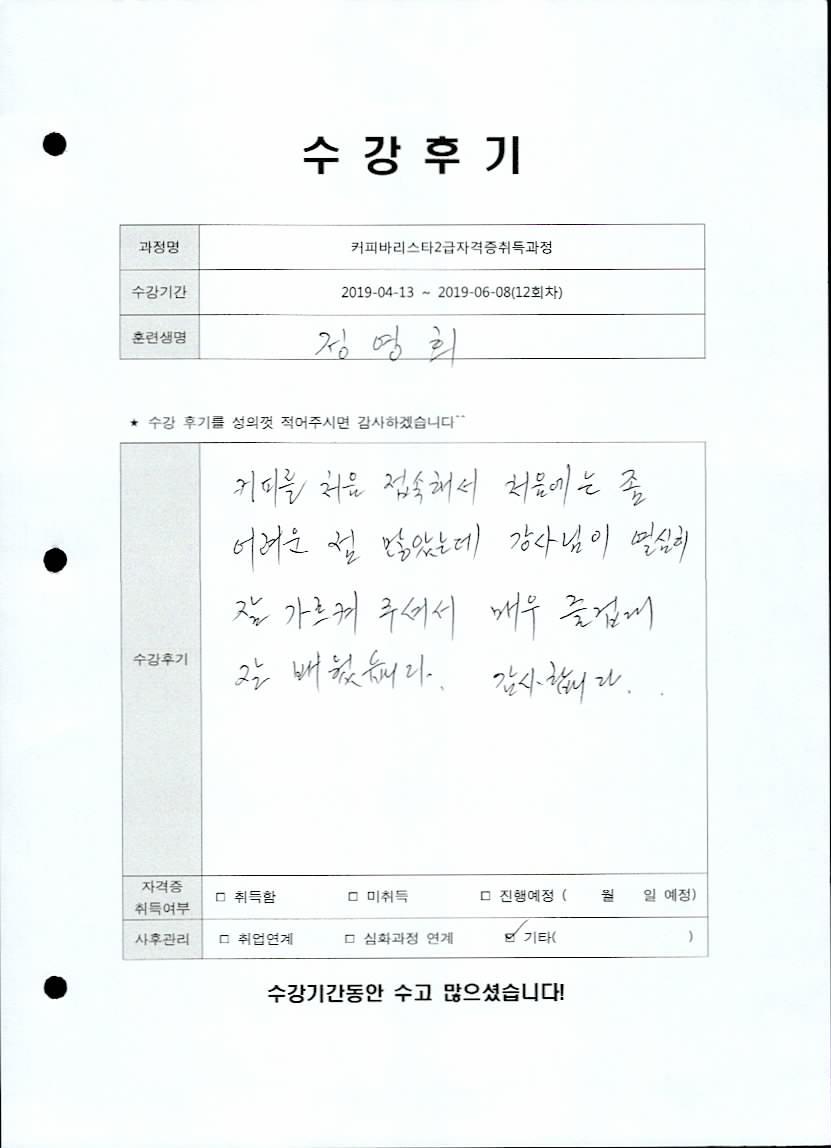 수 강 후 기
과정명 커피바리스타2급자격증취득과정
수강기간 2019-04-13 ~ 2019-06-08(12회차)
훈련생명 정영희
★ 수강 후기를 성의껏 적어주시면 감사하겠습니다^^
수강후기
커피를 처음 접속해서 처음에는 좀
어려운 점 많았는데 강사님이 열심히
잘 가르켜 주셔서 매우 즐겁게
잘 배웠습니다. 감사합니다.
자격증 취득여부 □ 취득함 □ 미취득 □ 진행예정 ( 월 일 예정)
사후관리 □ 취업연계 □ 심화과정 연계 ☑ 기타( )
수강기간동안 수고 많으셨습니다!